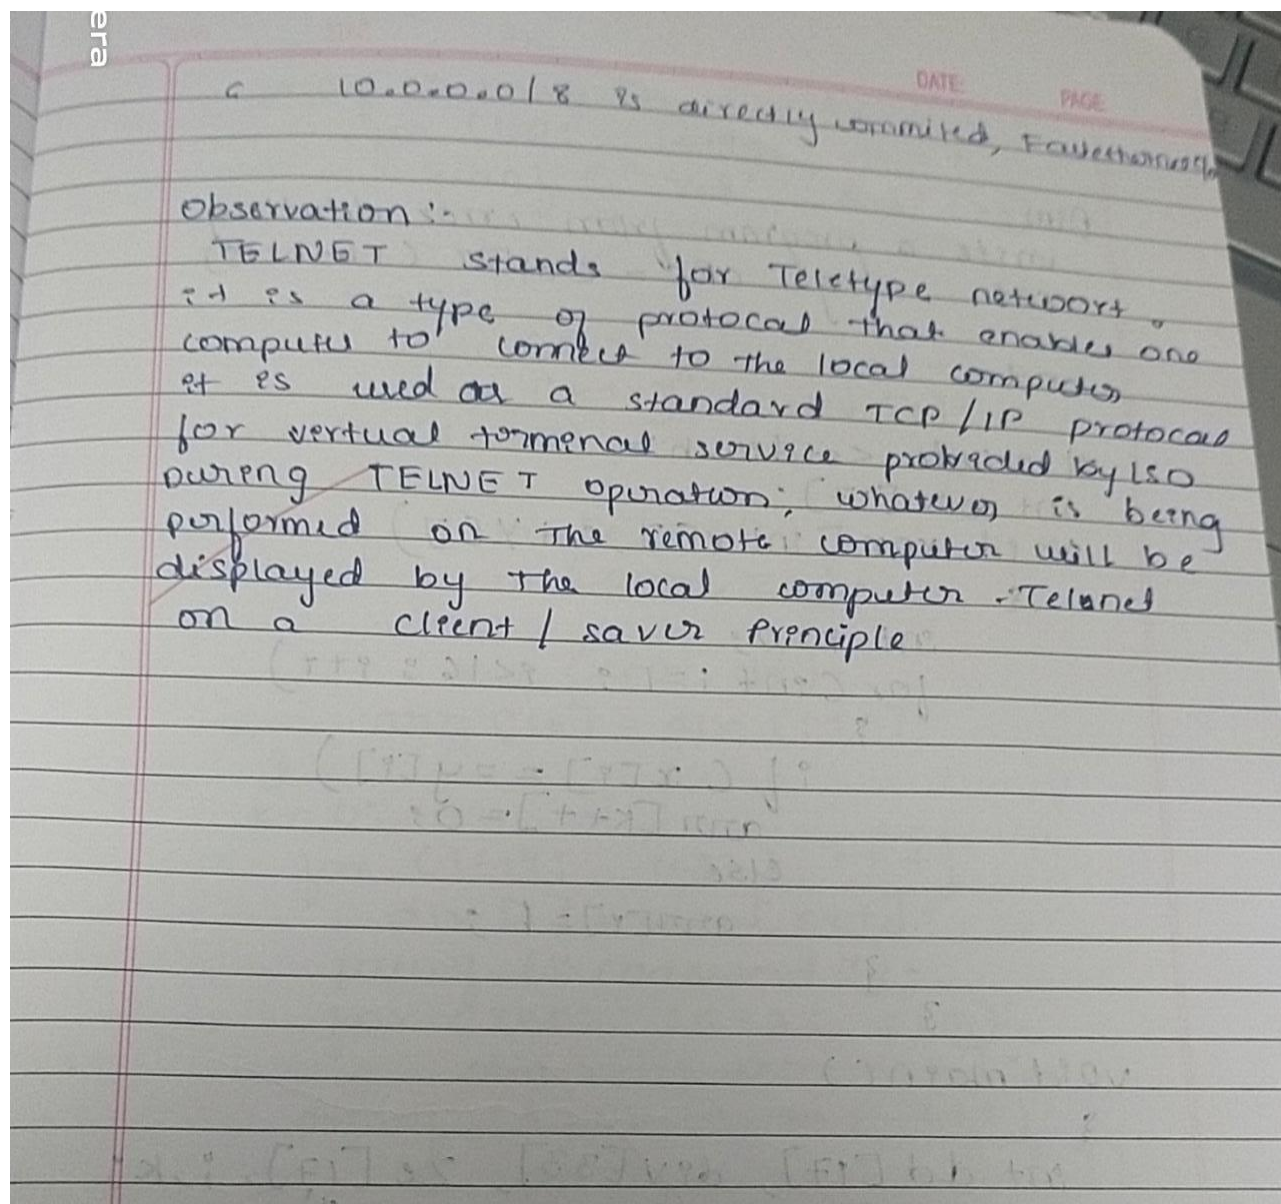 era
DATE: PAGE:
C 10.0.0.0/8 is directly commited,
Observation :-
TELNET stands for Teletype networt.
it is a type of protocal that enables one
computer to connect to the local computer
it is used as a standard TCP/IP protocal
for vertual termenal service probided by ISO
Dureng TELNET operation, whatever is being
performed on the remote computer will be
displayed by the local computer. Telenet
on a client / saver principle